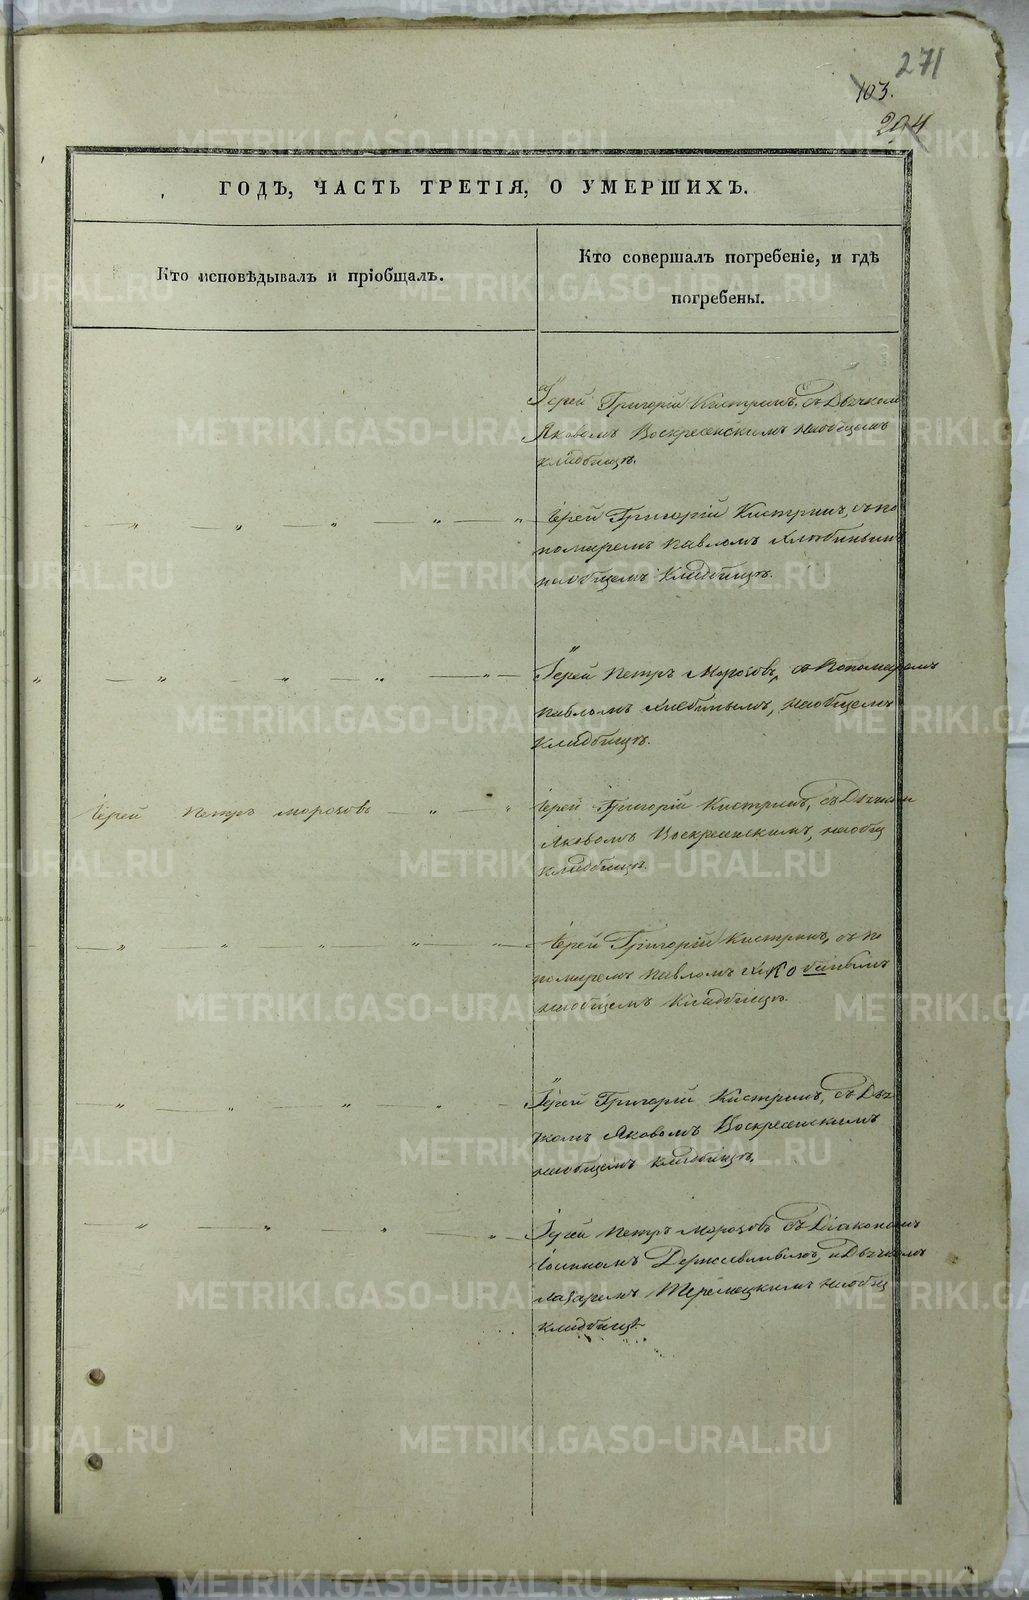 271
103.
294
ГОДЪ, ЧАСТЬ ТРЕТІЯ, О УМЕРШИХЪ.
Кто исповѣдывалъ и пріобщалъ.
Кто совершалъ погребеніе, и гдѣ
погребены.
Іерей Григорій Кистринъ, съ Дьячком
Яковомъ Воскресенскимъ наобщемъ
кладбищѣ.
Іерей Григорій Кистринъ, съ по
номаремъ Павломъ
наобщемъ Кладбищѣ.
Іерей Петръ Морозовъ, съ Пономаремъ
Павломъ наобщемъ
Кладбищѣ.
Іерей Петръ Морозовъ
Іерей Григорій Кистринъ, съ Дьячком
Яковомъ Воскресенскимъ, наобщ
кладбищѣ.
Іерей Григорій Кистринъ, съ по
номаремъ Павломъ
наобщемъ Кладбищѣ.
Іерей Григорій Кистринъ, съ Дьяч
комъ Яковомъ Воскресенскимъ
наобщемъ кладбищѣ.
Іерей Петръ Морозовъ съ Діакономъ
Іоанномъ и Дьячкомъ
Лазаремъ наобщ
кладбищѣ
METRIKI.GASO-URAL.RU